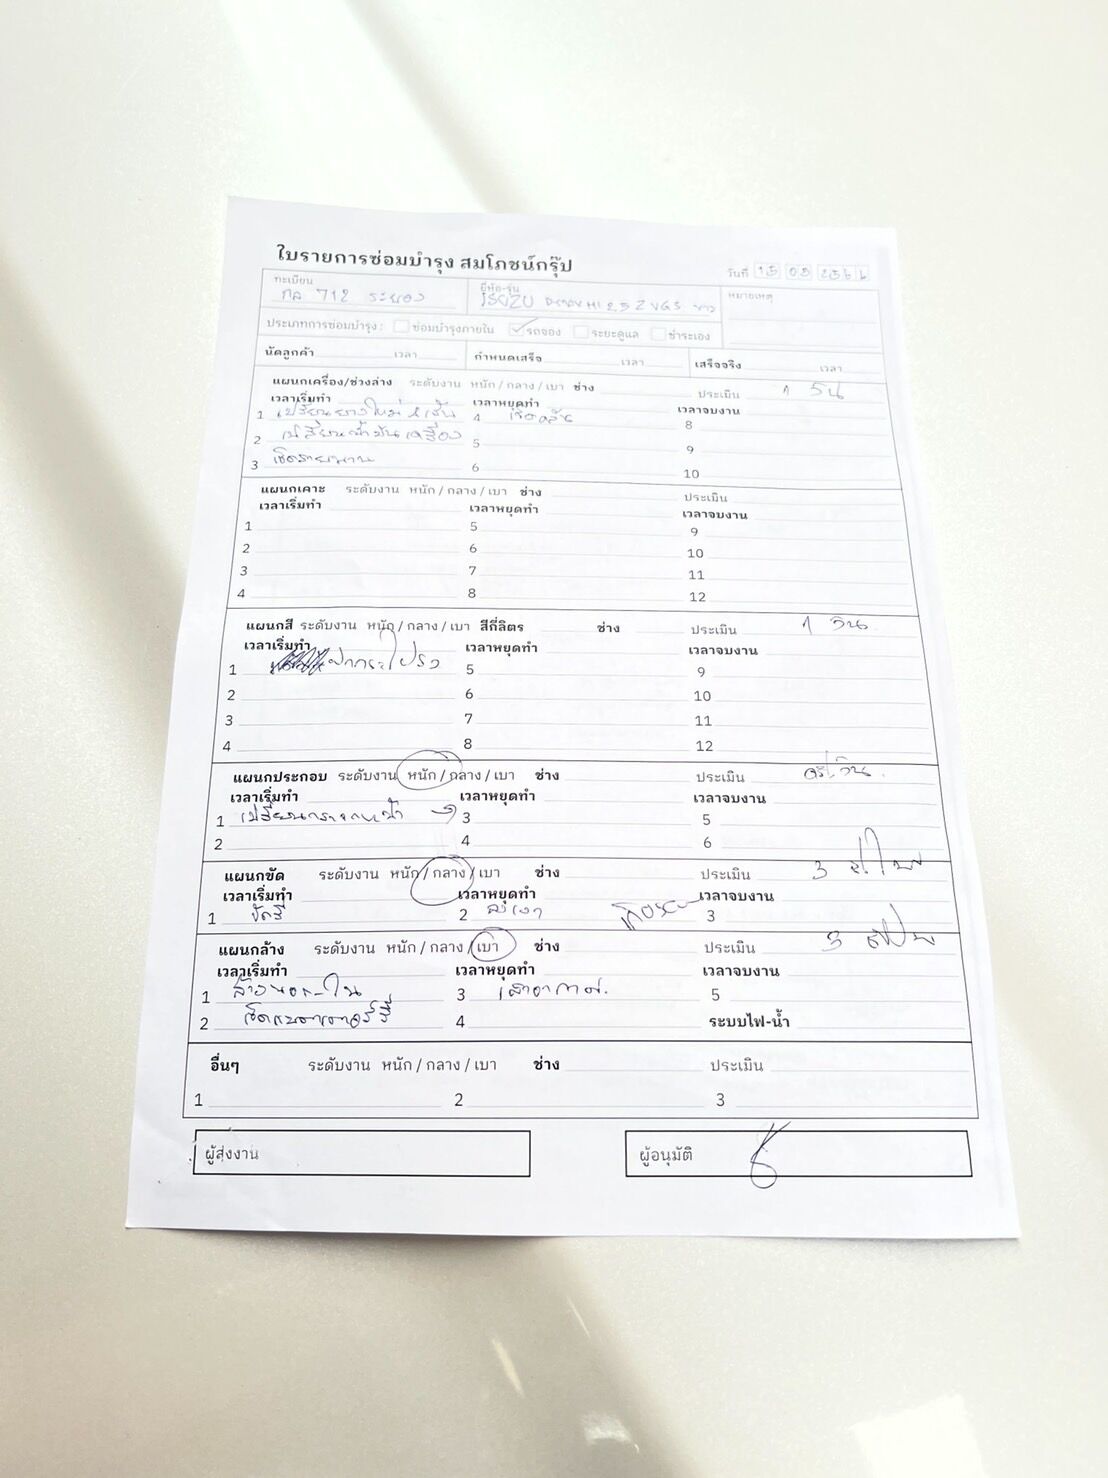 ใบรายการซ่อมบำรุง สมโภชน์กรุ๊ป
วันที่ 15 05 2566
ทะเบียน ยี่ห้อ-รุ่น หมายเหตุ
กล 712 ระยอง ISUZU 2.5 Z VGS ขาว
ประเภทการซ่อมบำรุง: ซ่อมบำรุงภายใน รถจอง ระยะดูแล ชำระเอง
นัดลูกค้า เวลา กำหนดเสร็จ เวลา เสร็จจริง เวลา
แผนกเครื่อง/ช่วงล่าง ระดับงาน หนัก / กลาง / เบา ช่าง ประเมิน 1 วัน
เวลาเริ่มทำ เวลาหยุดทำ เวลาจบงาน
1 เปลี่ยนยางใหม่ 4 เส้น 4 8
2 เปลี่ยนน้ำมันเครื่อง 5 9
3 6 10
แผนกเคาะ ระดับงาน หนัก / กลาง / เบา ช่าง ประเมิน
เวลาเริ่มทำ เวลาหยุดทำ เวลาจบงาน
1 5 9
2 6 10
3 7 11
4 8 12
แผนกสี ระดับงาน หนัก / กลาง / เบา สีกี่ลิตร ช่าง ประเมิน 1 วัน
เวลาเริ่มทำ เวลาหยุดทำ เวลาจบงาน
1 ฝากระโปรง 5 9
2 6 10
3 7 11
4 8 12
แผนกประกอบ ระดับงาน หนัก / กลาง / เบา ช่าง ประเมิน ครึ่งวัน
เวลาเริ่มทำ เวลาหยุดทำ เวลาจบงาน
1 เปลี่ยนกระจกหน้า 3 5
2 4 6
แผนกขัด ระดับงาน หนัก / กลาง / เบา ช่าง ประเมิน 3
เวลาเริ่มทำ เวลาหยุดทำ เวลาจบงาน
1 ขัดสี 2 3
แผนกล้าง ระดับงาน หนัก / กลาง / เบา ช่าง ประเมิน 3
เวลาเริ่มทำ เวลาหยุดทำ เวลาจบงาน
1 ล้างนอก-ใน 3 5
2 เช็คแบตเตอร์รี่ 4 ระบบไฟ-น้ำ
อื่นๆ ระดับงาน หนัก / กลาง / เบา ช่าง ประเมิน
1 2 3
ผู้ส่งงาน ผู้อนุมัติ